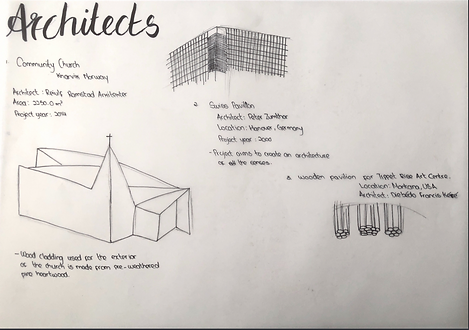 Architects
Community Church
Knarvik Norway
Architect: Reiulf Ramstad Arkitekter
Area: 2250.0 m²
Project year: 2014
- Wood cladding used for the exterior
of the church is made from pre-weathered
pine heartwood.
2 Swiss Pavilion
Architect: Peter Zumthor
Location: Hanover, Germany
Project year: 2000
- Project aims to create an architecture
of all the senses.
3 wooden pavilion for Tippet Rise Art Centre.
Location: Montana, USA
Architect: Diébédo Francis Kéré